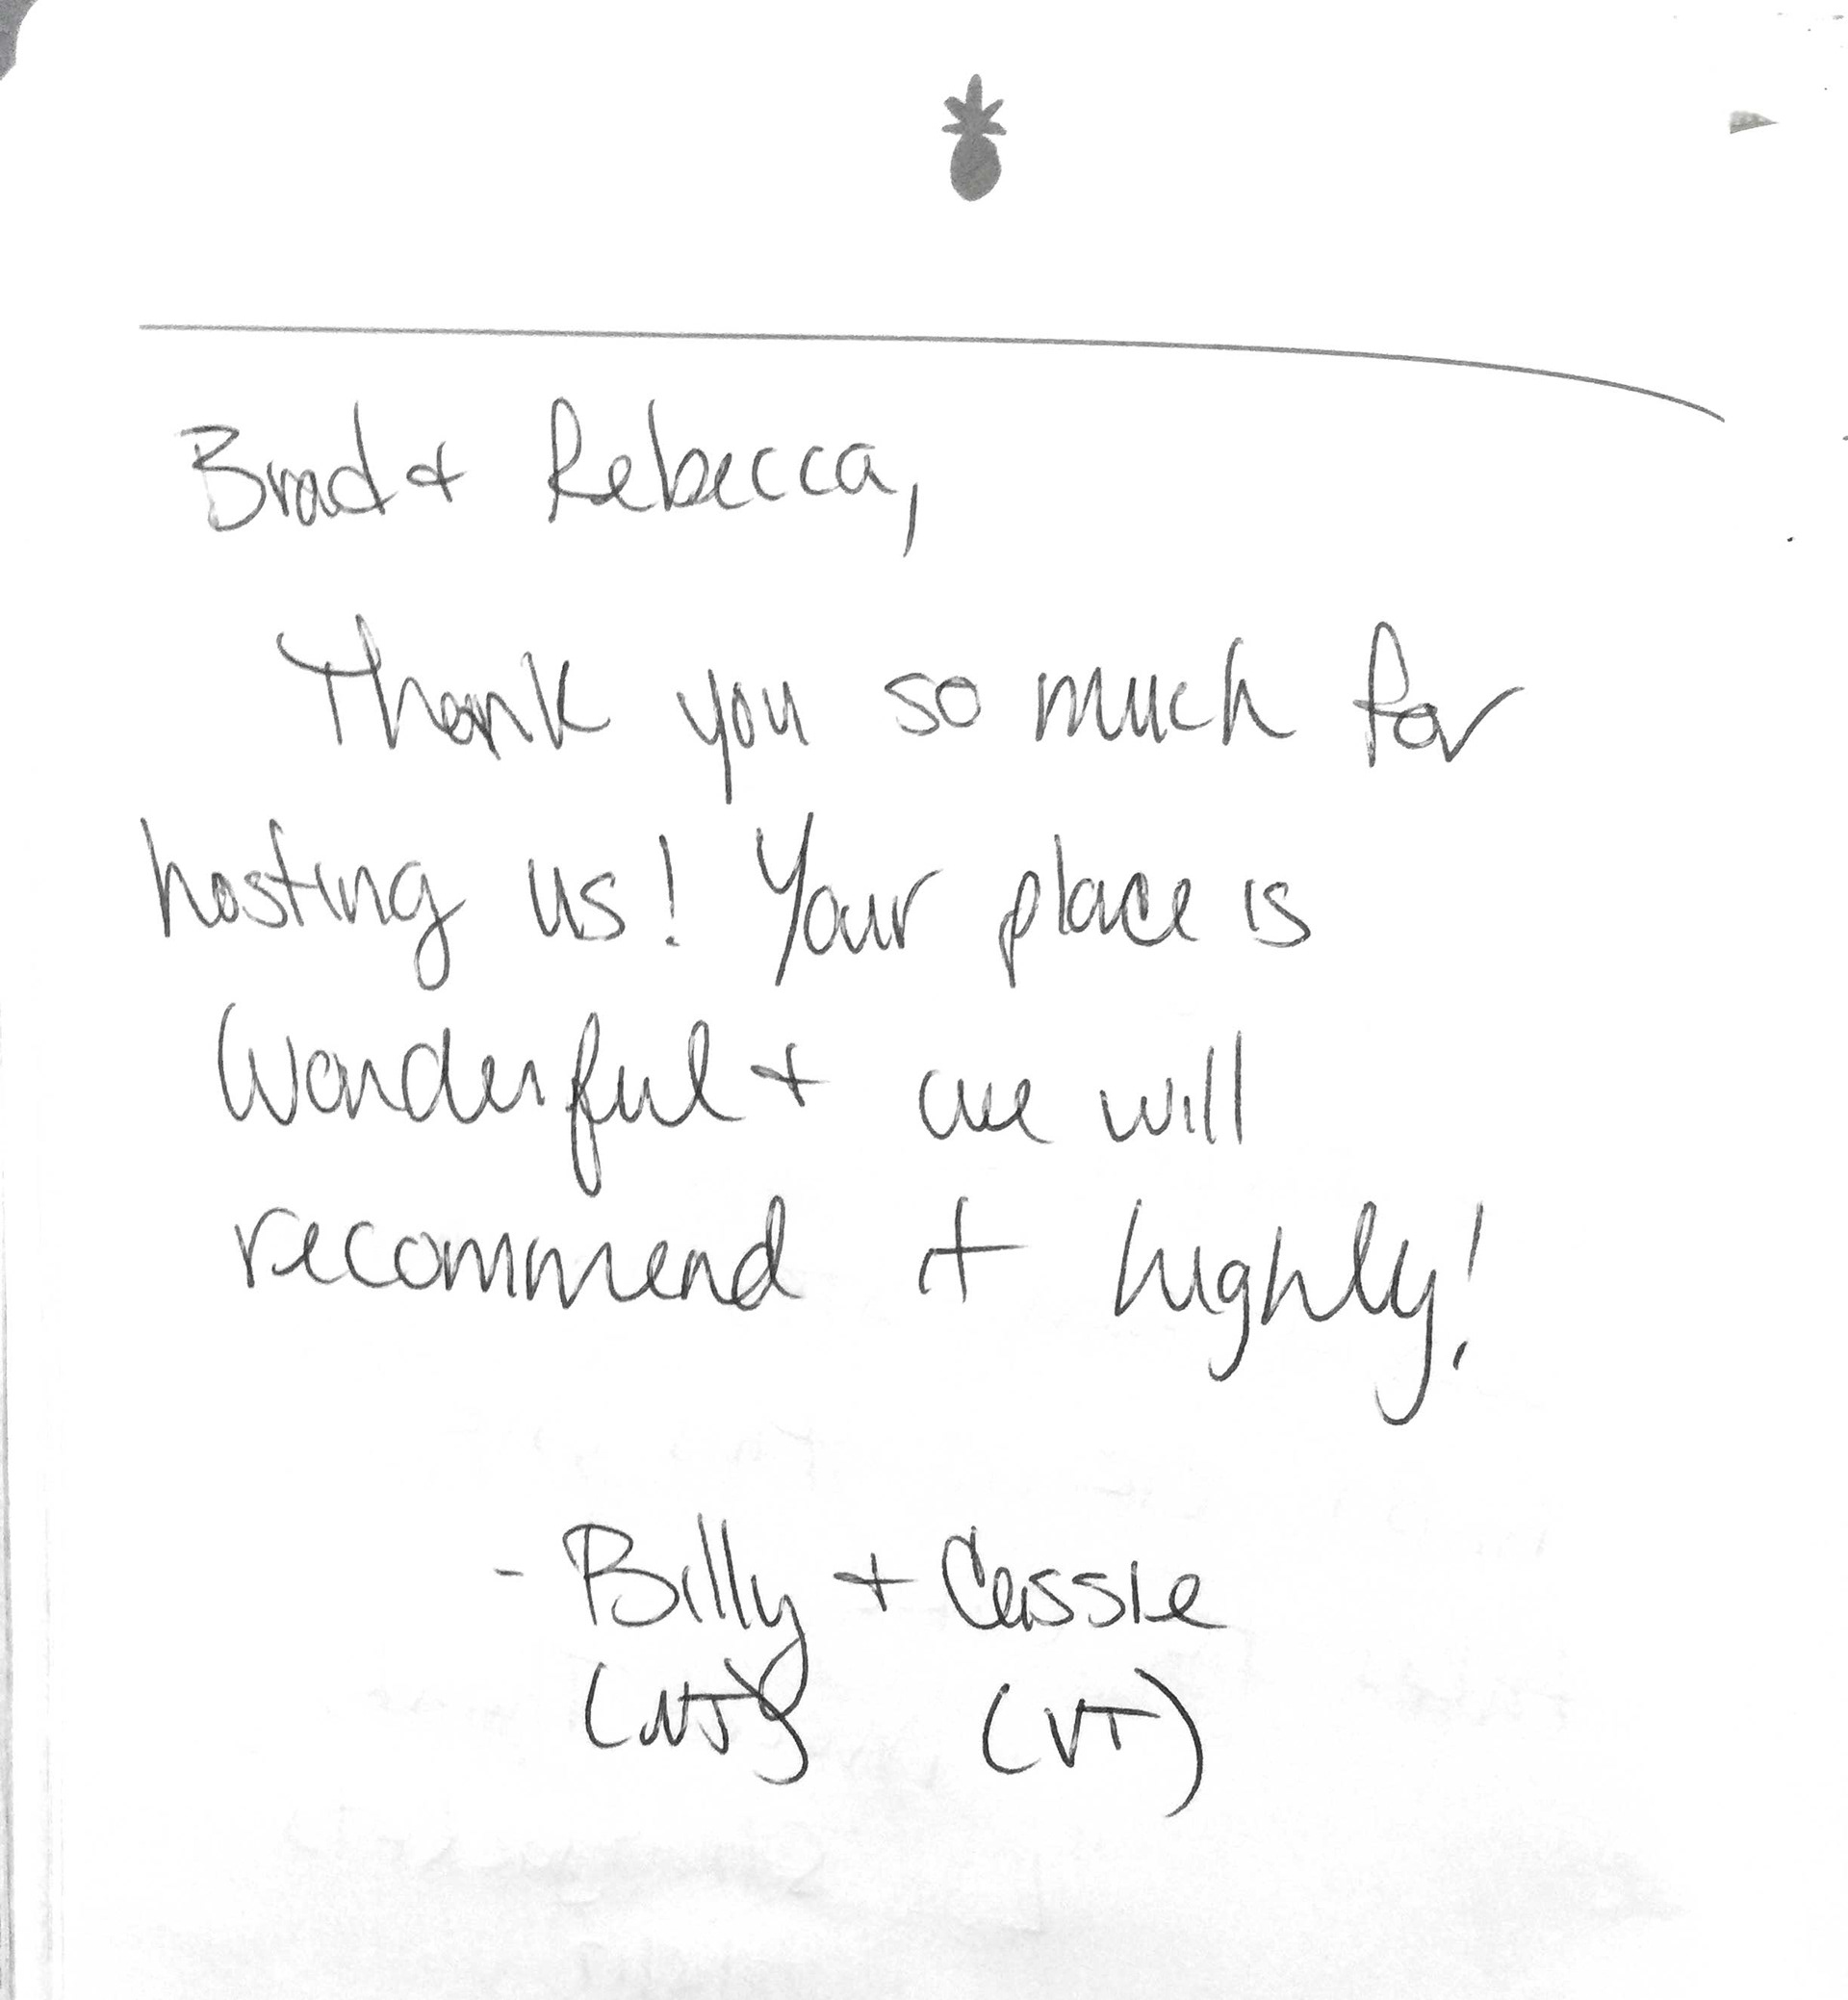 Brad + Rebecca,
Thank you so much for
hosting us! Your place is
Wonderful + we will
recommend it highly!
- Billy + Cassie
(NJ) (VT)